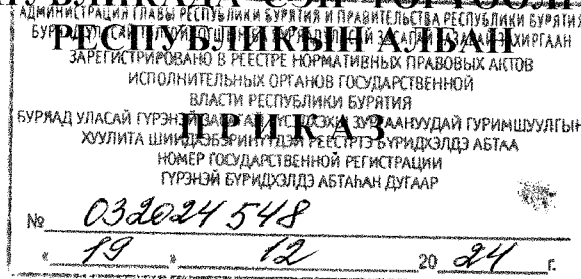 РЕСПУБЛИКАДА СЭН
АДМИНИСТРАЦИЯ ГЛАВЫ РЕСПУБЛИКИ БУРЯТИЯ И ПРАВИТЕЛЬСТВА РЕСПУБЛИКИ БУРЯТИЯ
РЕСПУБЛИКЫН АЛБАН
ЗАРЕГИСТРИРОВАНО В РЕЕСТРЕ НОРМАТИВНЫХ ПРАВОВЫХ АКТОВ
ИСПОЛНИТЕЛЬНЫХ ОРГАНОВ ГОСУДАРСТВЕННОЙ
ВЛАСТИ РЕСПУБЛИКИ БУРЯТИЯ
БУРЯАД УЛАСАЙ ГҮРЭНЭЙ ГУРИМШУУЛГЫН
ПРИКАЗ
ХУУЛИТА БҮРИДХЭЛДЭ АБТАА
НОМЕР ГОСУДАРСТВЕННОЙ РЕГИСТРАЦИИ
ГҮРЭНЭЙ БҮРИДХЭЛДЭ АБТАҺАН ДУГААР
№ 032024 548
« 19 » 12 20 24 г.